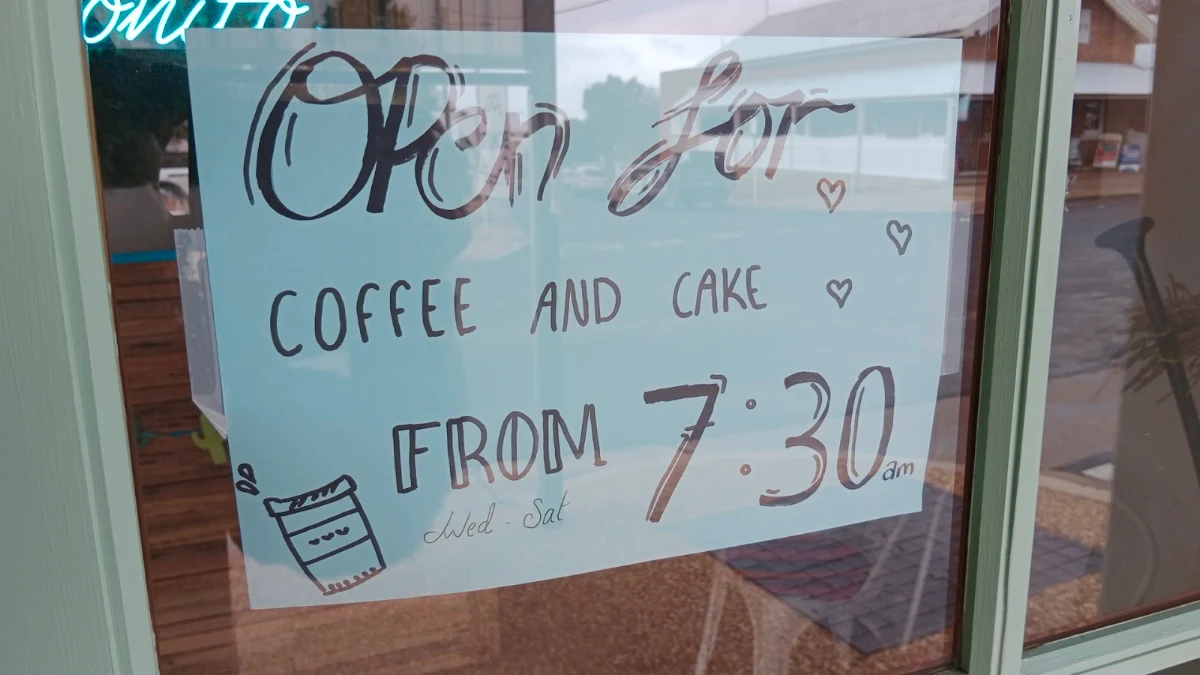 Open for
COFFEE AND CAKE
FROM 7:30am
Wed - Sat